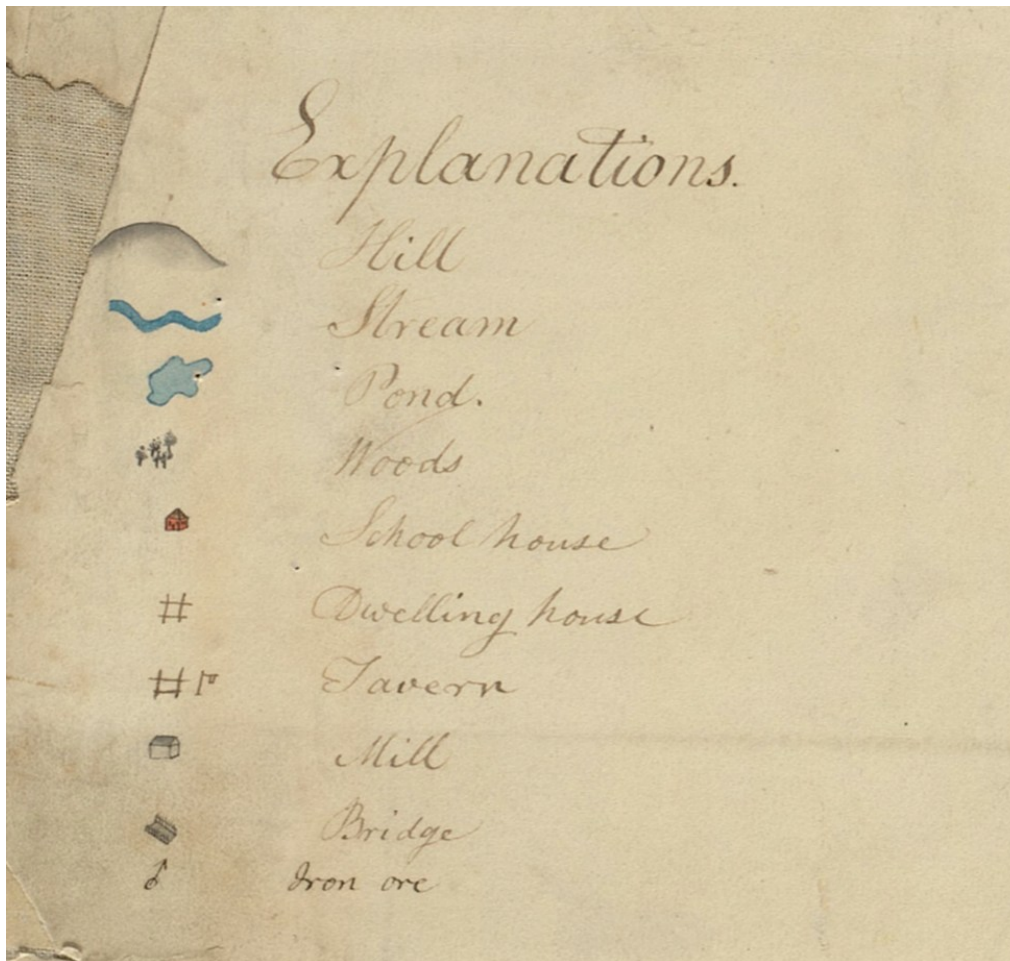 Explanations.
Hill
Stream
Pond.
Woods
School house
Dwelling house
Tavern
Mill
Bridge
Iron ore